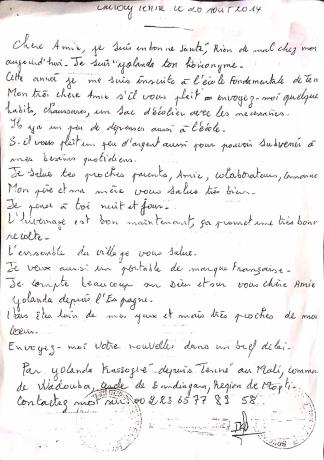 le 20 Aout 2014
Chère Amie, je suis en bonne santé, Rien de mal chez moi
aujourd'hui. Je suis yolanda ton homonyme.
Cette année je me suis inscrite à l'école fondamentale de Ten
Mon très chère Amie s'il vous plait envoyez-moi quelque
habits, chaussures, un sac d'écolier avec les necessaires.
Il y a un peu de depenses aussi à l'école.
S. il vous plait un peu d'argent aussi pour pouvoir subvenir à
mes besoins quotidiens.
Je salue tes proches parents, Amie, colaborateurs,
Mon père et ma mère vous salue très bien.
Je pense à toi nuit et jour.
L'hivernage est bon maintenant, ça promet une très bonne
recolte.
L'ensemble du village vous salue.
Je veux aussi un portable de marque Française.
Je compte beaucoup sur Dieu et sur vous chère Amie
yolanda depuis l'Espagne.
Vous être loin de mes yeux et mais très proches de mon
coeur.
Envoyez-moi votre nouvelles dans un bref delai.
Par yolanda Kassogué depuis au Mali, commune
de Wadouba, cercle de Bandiagara, Region de Mopti.
contactez moi sur: 00 223 65 77 83 58.